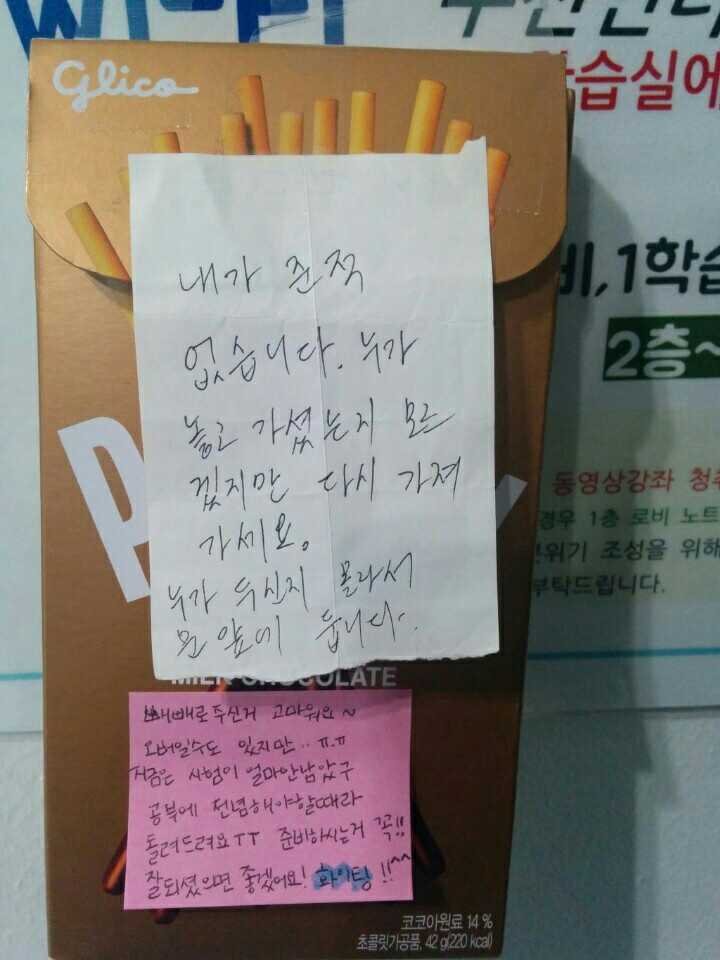 Glico
습실에
내가 준적
없습니다. 누가
놓고 가셨는지 모르
겠지만 다시 가져
가세요.
누가 두신지 몰라서
문 앞에 둡니다.
비,1학습
2층~
동영상강좌 청취
경우 1층 로비 노트
분위기 조성을 위해
부탁드립니다.
MILK CHOCOLATE
빼빼로주신거 고마워요~
오버일수도 있지만..ㅠ.ㅠ
지금은 시험이 얼마안남았구
공부에 전념해야할때라
돌려드려요ㅜㅜ 준비하시는거 꼭!!
잘되셨으면 좋겠어요! 화이팅!!^^
코코아원료 14 %
초콜릿가공품, 42 g(220 kcal)